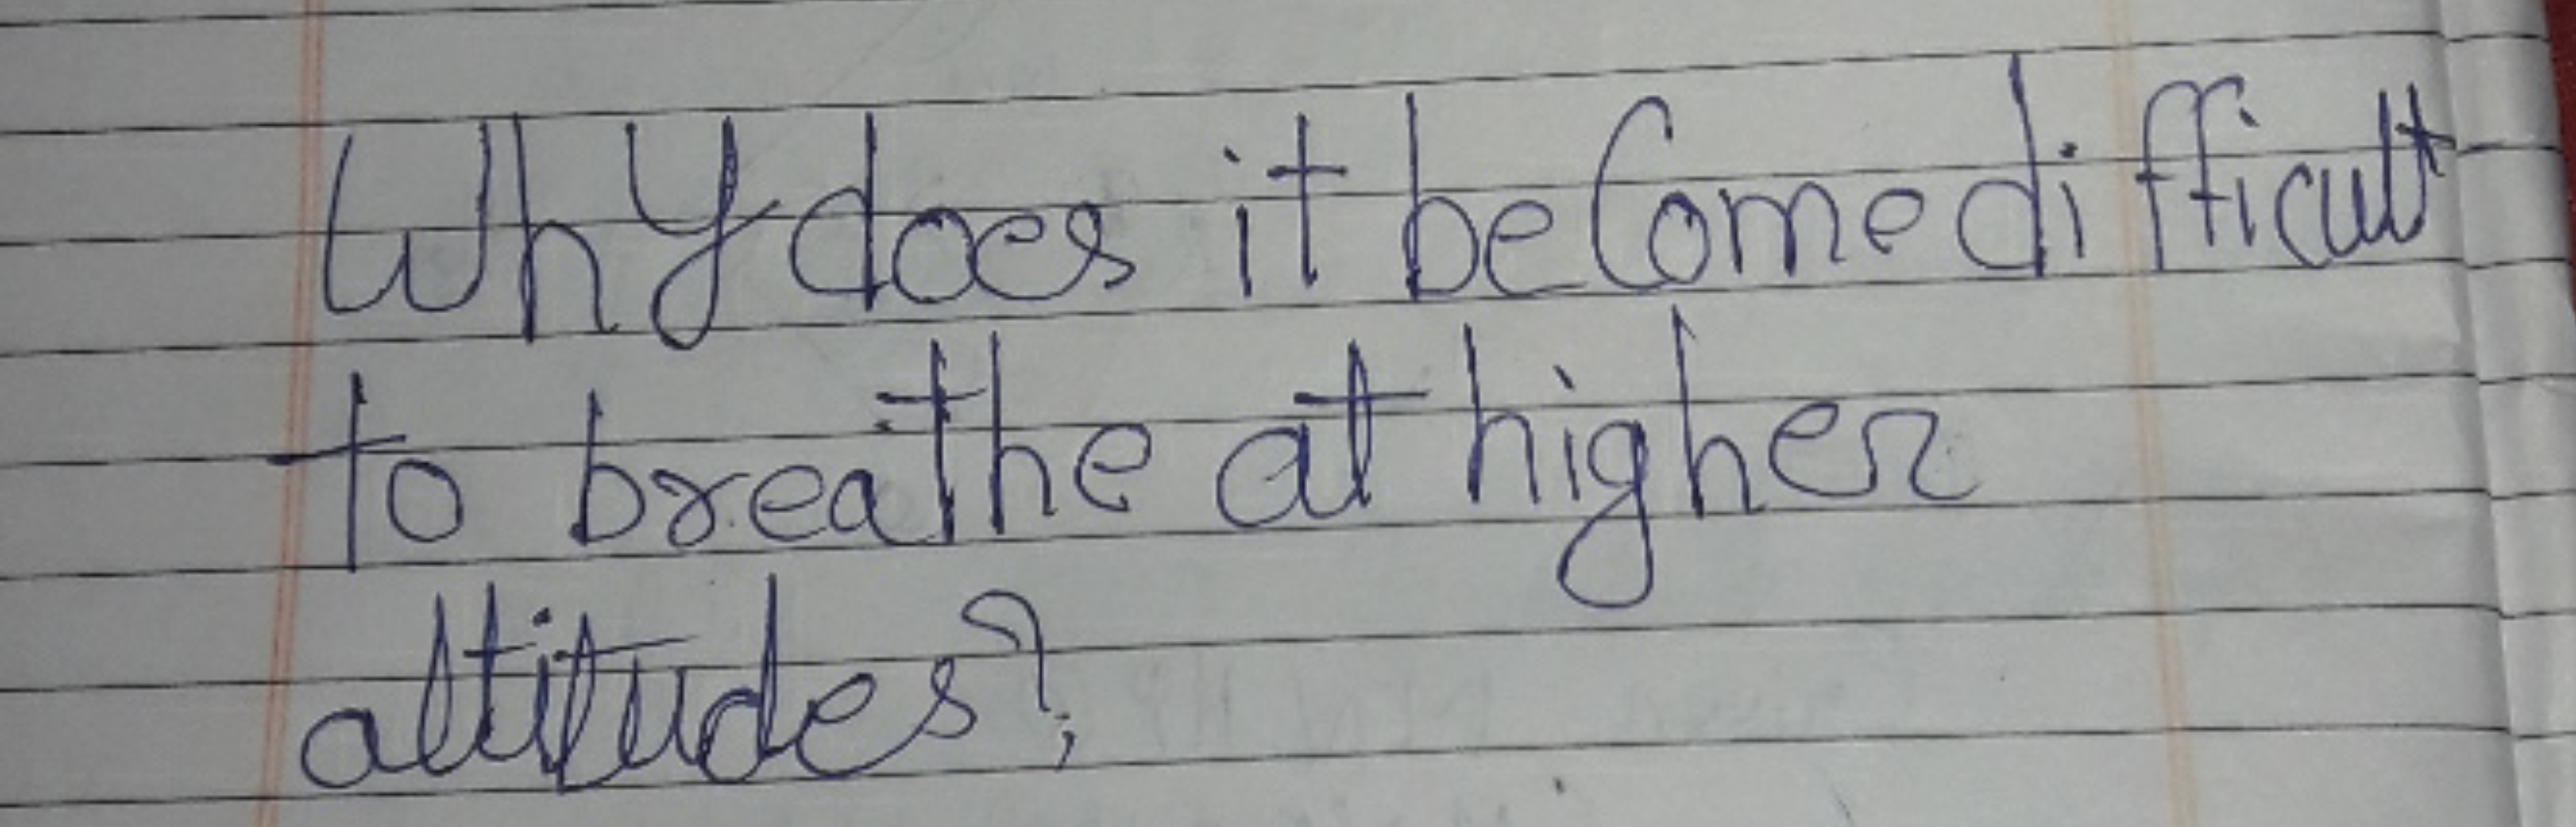 Why does it become difficult
to breathe at higher
altitudes?